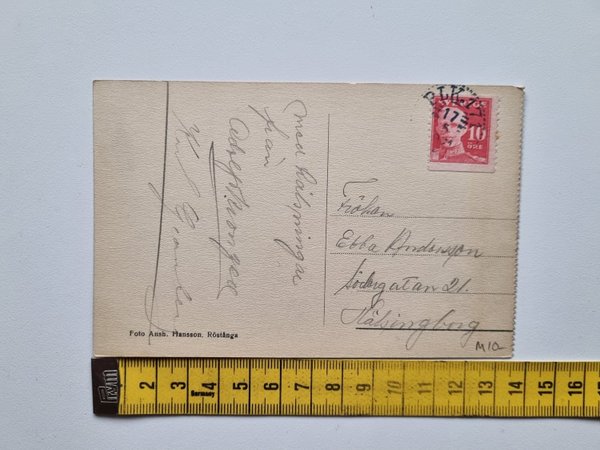 med hälsningar
från
Fröken
Ebba Andersson
Södergatan 21.
Hälsingborg
M10
Foto Ansh. Hansson. Röstånga
PLK
17
SVERIGE
10
ÖRE
2 3 4 5 6 7 8 9 10 11 12 13 14 15 16
Germany